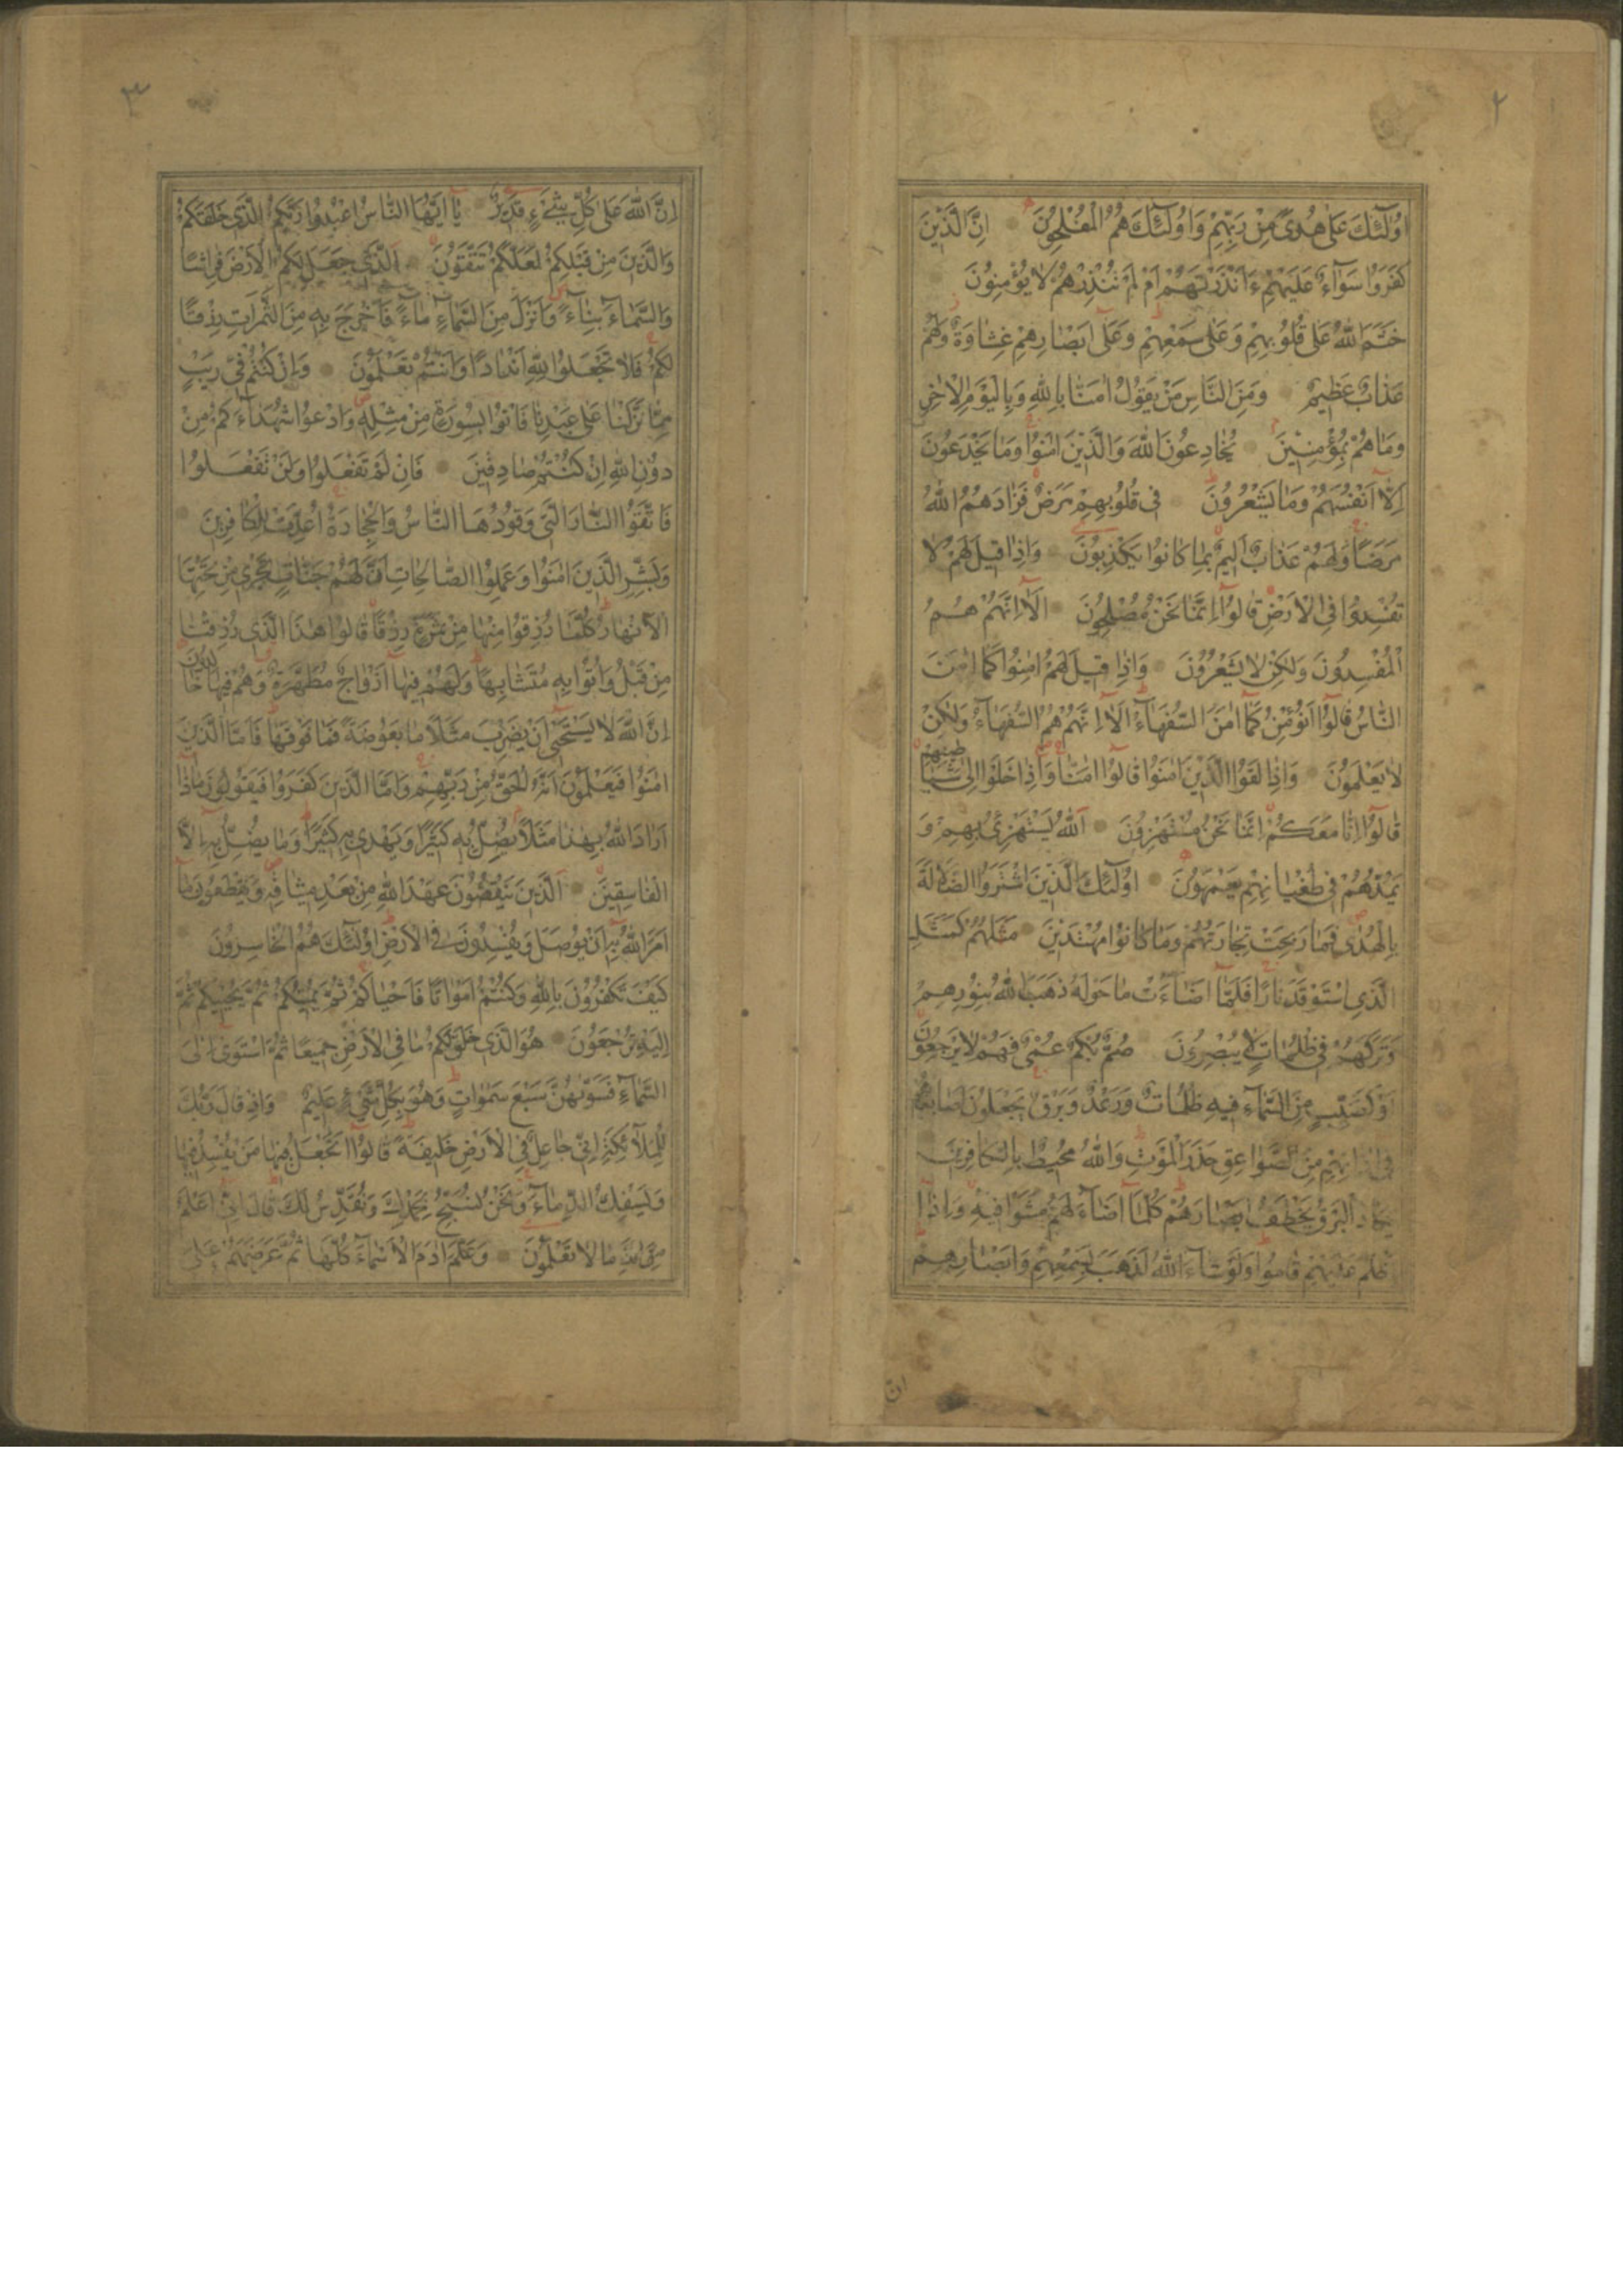 ٢
اُولٰٓئِكَ عَلٰى هُدًى مِنْ رَبِّهِمْ وَاُولٰٓئِكَ هُمُ الْمُفْلِحُونَ اِنَّ الَّذِينَ
كَفَرُوا سَوَآءٌ عَلَيْهِمْ ءَاَنْذَرْتَهُمْ اَمْ لَمْ تُنْذِرْهُمْ لَا يُؤْمِنُونَ
خَتَمَ اللّٰهُ عَلٰى قُلُوبِهِمْ وَعَلٰى سَمْعِهِمْ وَعَلٰى اَبْصَارِهِمْ غِشَاوَةٌ وَلَهُمْ
عَذَابٌ عَظِيمٌ وَمِنَ النَّاسِ مَنْ يَقُولُ اٰمَنَّا بِاللّٰهِ وَبِالْيَوْمِ الْاٰخِرِ
وَمَا هُمْ بِمُؤْمِنِينَ يُخَادِعُونَ اللّٰهَ وَالَّذِينَ اٰمَنُوا وَمَا يَخْدَعُونَ
اِلَّا اَنْفُسَهُمْ وَمَا يَشْعُرُونَ فِى قُلُوبِهِمْ مَرَضٌ فَزَادَهُمُ اللّٰهُ
مَرَضًا وَلَهُمْ عَذَابٌ اَلِيمٌ بِمَا كَانُوا يَكْذِبُونَ وَاِذَا قِيلَ لَهُمْ لَا
تُفْسِدُوا فِى الْاَرْضِ قَالُوٓا اِنَّمَا نَحْنُ مُصْلِحُونَ اَلَآ اِنَّهُمْ هُمُ
الْمُفْسِدُونَ وَلٰكِنْ لَا يَشْعُرُونَ وَاِذَا قِيلَ لَهُمْ اٰمِنُوا كَمَآ اٰمَنَ
النَّاسُ قَالُوٓا اَنُؤْمِنُ كَمَآ اٰمَنَ السُّفَهَآءُ اَلَآ اِنَّهُمْ هُمُ السُّفَهَآءُ وَلٰكِنْ
لَا يَعْلَمُونَ وَاِذَا لَقُوا الَّذِينَ اٰمَنُوا قَالُوٓا اٰمَنَّا وَاِذَا خَلَوْا اِلٰى شَيَاطِينِهِمْ
قَالُوٓا اِنَّا مَعَكُمْ اِنَّمَا نَحْنُ مُسْتَهْزِؤُنَ اَللّٰهُ يَسْتَهْزِئُ بِهِمْ وَ
يَمُدُّهُمْ فِى طُغْيَانِهِمْ يَعْمَهُونَ اُولٰٓئِكَ الَّذِينَ اشْتَرَوُا الضَّلَالَةَ
بِالْهُدٰى فَمَا رَبِحَتْ تِجَارَتُهُمْ وَمَا كَانُوا مُهْتَدِينَ مَثَلُهُمْ كَمَثَلِ
الَّذِى اسْتَوْقَدَ نَارًا فَلَمَّآ اَضَآءَتْ مَا حَوْلَهُ ذَهَبَ اللّٰهُ بِنُورِهِمْ
وَتَرَكَهُمْ فِى ظُلُمَاتٍ لَا يُبْصِرُونَ صُمٌّ بُكْمٌ عُمْىٌ فَهُمْ لَا يَرْجِعُونَ
اَوْ كَصَيِّبٍ مِنَ السَّمَآءِ فِيهِ ظُلُمَاتٌ وَرَعْدٌ وَبَرْقٌ يَجْعَلُونَ اَصَابِعَهُمْ
فِىٓ اٰذَانِهِمْ مِنَ الصَّوَاعِقِ حَذَرَ الْمَوْتِ وَاللّٰهُ مُحِيطٌ بِالْكَافِرِينَ
يَكَادُ الْبَرْقُ يَخْطَفُ اَبْصَارَهُمْ كُلَّمَآ اَضَآءَ لَهُمْ مَشَوْا فِيهِ وَاِذَآ
اَظْلَمَ عَلَيْهِمْ قَامُوا وَلَوْ شَآءَ اللّٰهُ لَذَهَبَ بِسَمْعِهِمْ وَاَبْصَارِهِمْ
ان
٣
اِنَّ اللّٰهَ عَلٰى كُلِّ شَىْءٍ قَدِيرٌ يَآ اَيُّهَا النَّاسُ اعْبُدُوا رَبَّكُمُ الَّذِى خَلَقَكُمْ
وَالَّذِينَ مِنْ قَبْلِكُمْ لَعَلَّكُمْ تَتَّقُونَ اَلَّذِى جَعَلَ لَكُمُ الْاَرْضَ فِرَاشًا
وَالسَّمَآءَ بِنَآءً وَاَنْزَلَ مِنَ السَّمَآءِ مَآءً فَاَخْرَجَ بِهِ مِنَ الثَّمَرَاتِ رِزْقًا
لَكُمْ فَلَا تَجْعَلُوا لِلّٰهِ اَنْدَادًا وَاَنْتُمْ تَعْلَمُونَ وَاِنْ كُنْتُمْ فِى رَيْبٍ
مِمَّا نَزَّلْنَا عَلٰى عَبْدِنَا فَاْتُوا بِسُورَةٍ مِنْ مِثْلِهِ وَادْعُوا شُهَدَآءَكُمْ مِنْ
دُونِ اللّٰهِ اِنْ كُنْتُمْ صَادِقِينَ فَاِنْ لَمْ تَفْعَلُوا وَلَنْ تَفْعَلُوا
فَاتَّقُوا النَّارَ الَّتِى وَقُودُهَا النَّاسُ وَالْحِجَارَةُ اُعِدَّتْ لِلْكَافِرِينَ
وَبَشِّرِ الَّذِينَ اٰمَنُوا وَعَمِلُوا الصَّالِحَاتِ اَنَّ لَهُمْ جَنَّاتٍ تَجْرِى مِنْ تَحْتِهَا
الْاَنْهَارُ كُلَّمَا رُزِقُوا مِنْهَا مِنْ ثَمَرَةٍ رِزْقًا قَالُوا هٰذَا الَّذِى رُزِقْنَا
مِنْ قَبْلُ وَاُتُوا بِهِ مُتَشَابِهًا وَلَهُمْ فِيهَآ اَزْوَاجٌ مُطَهَّرَةٌ وَهُمْ فِيهَا خَالِدُونَ
اِنَّ اللّٰهَ لَا يَسْتَحْيِىٓ اَنْ يَضْرِبَ مَثَلًا مَا بَعُوضَةً فَمَا فَوْقَهَا فَاَمَّا الَّذِينَ
اٰمَنُوا فَيَعْلَمُونَ اَنَّهُ الْحَقُّ مِنْ رَبِّهِمْ وَاَمَّا الَّذِينَ كَفَرُوا فَيَقُولُونَ مَاذَآ
اَرَادَ اللّٰهُ بِهٰذَا مَثَلًا يُضِلُّ بِهِ كَثِيرًا وَيَهْدِى بِهِ كَثِيرًا وَمَا يُضِلُّ بِهِ اِلَّا
الْفَاسِقِينَ اَلَّذِينَ يَنْقُضُونَ عَهْدَ اللّٰهِ مِنْ بَعْدِ مِيثَاقِهِ وَيَقْطَعُونَ مَآ
اَمَرَ اللّٰهُ بِهِ اَنْ يُوصَلَ وَيُفْسِدُونَ فِى الْاَرْضِ اُولٰٓئِكَ هُمُ الْخَاسِرُونَ
كَيْفَ تَكْفُرُونَ بِاللّٰهِ وَكُنْتُمْ اَمْوَاتًا فَاَحْيَاكُمْ ثُمَّ يُمِيتُكُمْ ثُمَّ يُحْيِيكُمْ ثُمَّ
اِلَيْهِ تُرْجَعُونَ هُوَ الَّذِى خَلَقَ لَكُمْ مَا فِى الْاَرْضِ جَمِيعًا ثُمَّ اسْتَوٰىٓ اِلَى
السَّمَآءِ فَسَوّٰيهُنَّ سَبْعَ سَمٰوَاتٍ وَهُوَ بِكُلِّ شَىْءٍ عَلِيمٌ وَاِذْ قَالَ رَبُّكَ
لِلْمَلَآئِكَةِ اِنِّى جَاعِلٌ فِى الْاَرْضِ خَلِيفَةً قَالُوٓا اَتَجْعَلُ فِيهَا مَنْ يُفْسِدُ فِيهَا
وَيَسْفِكُ الدِّمَآءَ وَنَحْنُ نُسَبِّحُ بِحَمْدِكَ وَنُقَدِّسُ لَكَ قَالَ اِنِّىٓ اَعْلَمُ
مَا لَا تَعْلَمُونَ وَعَلَّمَ اٰدَمَ الْاَسْمَآءَ كُلَّهَا ثُمَّ عَرَضَهُمْ عَلَى